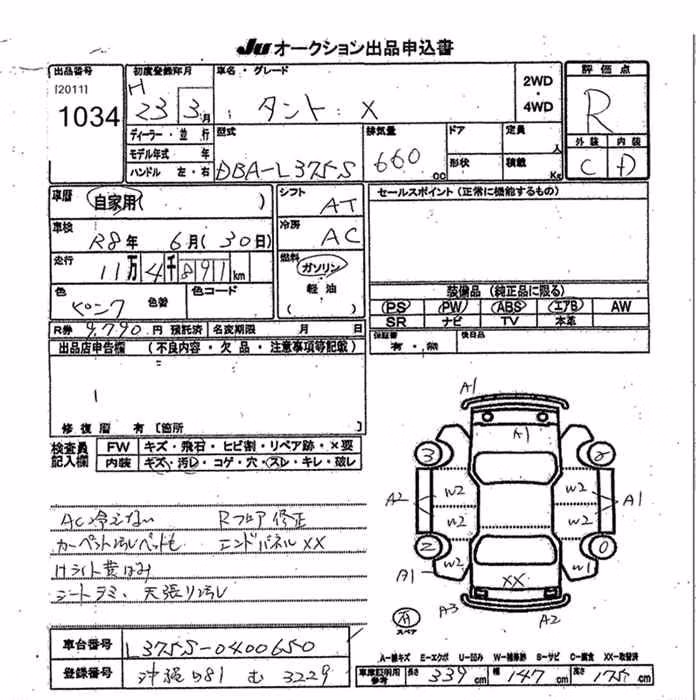 Ju オークション出品申込書
出品番号
[2011]
1034
初度登録年月
H 23 3月
車名・グレード
タント X
2WD
・
4WD
評価点
R
外装 内装
C D
ディーラー・並行
モデル年式 年
ハンドル 左・右
型式
DBA-L375S
排気量
660 cc
ドア
形状
定員 人
積載 Kg
車歴 自家用( )
車検 R8年 6月(30日)
走行 11万4千891km
色 ピンク 色替
色コード
シフト AT
冷房 AC
燃料 ガソリン
軽油
( )
セールスポイント (正常に機能するもの)
装備品 (純正品に限る)
PS PW ABS エアB AW
SR ナビ TV 本革
保証書 有・無
後日品
R券 9,790 円 預託済 名変期限 月 日
出品店申告欄 (不良内容・欠品・注意事項等記載)
修復歴 有 [箇所 ]
検査員
記入欄
FW キズ・飛石・ヒビ割・リペア跡・×要
内装 キズ・汚レ・コゲ・穴・スレ・キレ・破レ
AC冷えない Rフロア修正
カーペット汚レペットも エンドパネルXX
Hライト黄ばみ
シートシミ、天張り汚レ
A1
A1
3 2
W2 W2
A2 A1
W2 W2
2 0
W2 W1
A1
XX
A3 A2
有
スペア
車台番号 L375S-0400650
登録番号 沖縄 581 む 3229
A-線キズ E-エクボ U-凹み W-補修跡 S-サビ C-腐食 XX-交換済
車庫証明用
参考
長さ 339cm 幅 147cm 高さ 175cm